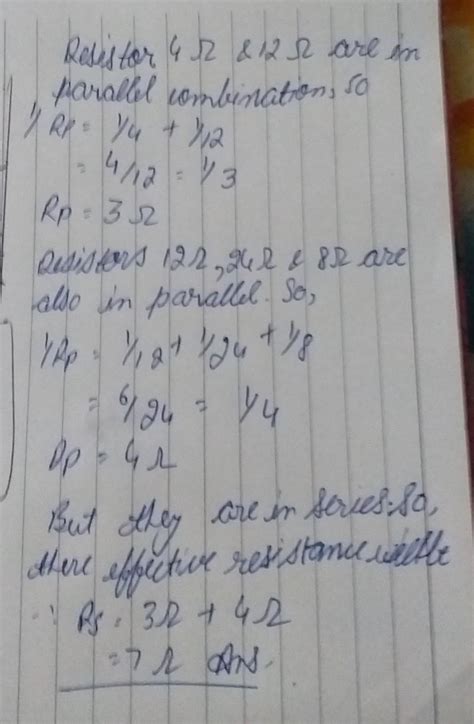 Resistor 4 Ω & 12 Ω are in
parallel combination, so
1/Rp = 1/4 + 1/12
= 4/12 = 1/3
Rp = 3 Ω
Resistors 12Ω, 24Ω & 8Ω are
also in parallel. So,
1/Rp = 1/12 + 1/24 + 1/8
= 6/24 = 1/4
Rp = 4 Ω
But they are in series. So,
there effective resistance will be
∴ Rs = 3Ω + 4Ω
= 7 Ω Ans.